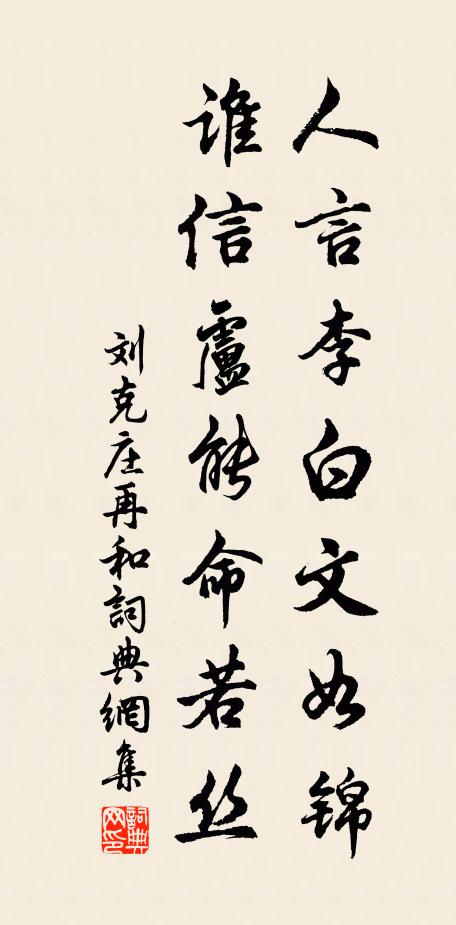 人言李白文如锦
谁信盧能命若丝
刘克庄再和詞典網集
詞典網印